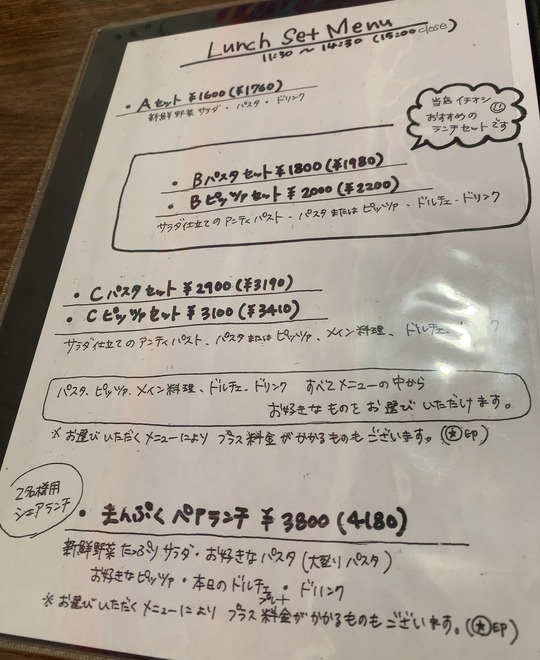 Lunch Set Menu
11:30 ~ 14:30 (15:00 close)
・Aセット ¥1600(¥1760)
新鮮野菜サラダ・パスタ・ドリンク
当店イチオシ
おすすめの
ランチセットです
・Bパスタセット ¥1800(¥1980)
・Bピッツァセット ¥2000(¥2200)
サラダ仕立てのアンティパスト・パスタまたはピッツァ・ドルチェ・ドリンク
・Cパスタセット ¥2900(¥3190)
・Cピッツァセット ¥3100(¥3410)
サラダ仕立てのアンティパスト、パスタまたはピッツァ、メイン料理、ドルチェ・ ク
パスタ、ピッツァ、メイン料理、ドルチェ・ドリンク すべてメニューの中から
お好きなものをお選びいただけます。
※お選びいただくメニューにより プラス料金がかかるものもございます。(★印)
2名様用
シェアランチ
・まんぷくペアランチ ¥3800(4180)
新鮮野菜たっぷりサラダ・お好きなパスタ(大盛りパスタ)
お好きなピッツァ・本日のドルチェプレート・ドリンク
※お選びいただくメニューにより プラス料金がかかるものもございます。(★印)